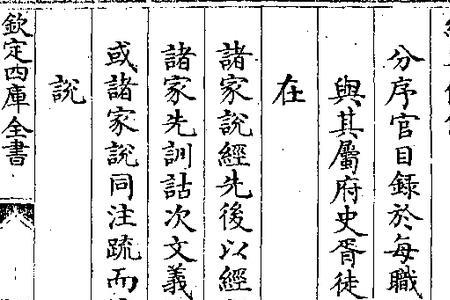 分序官目録於每職
與其屬府史胥徒
在
諸家說經先後以經
諸家先訓詁次文義
或諸家說同注疏而
說
欽定四庫全書